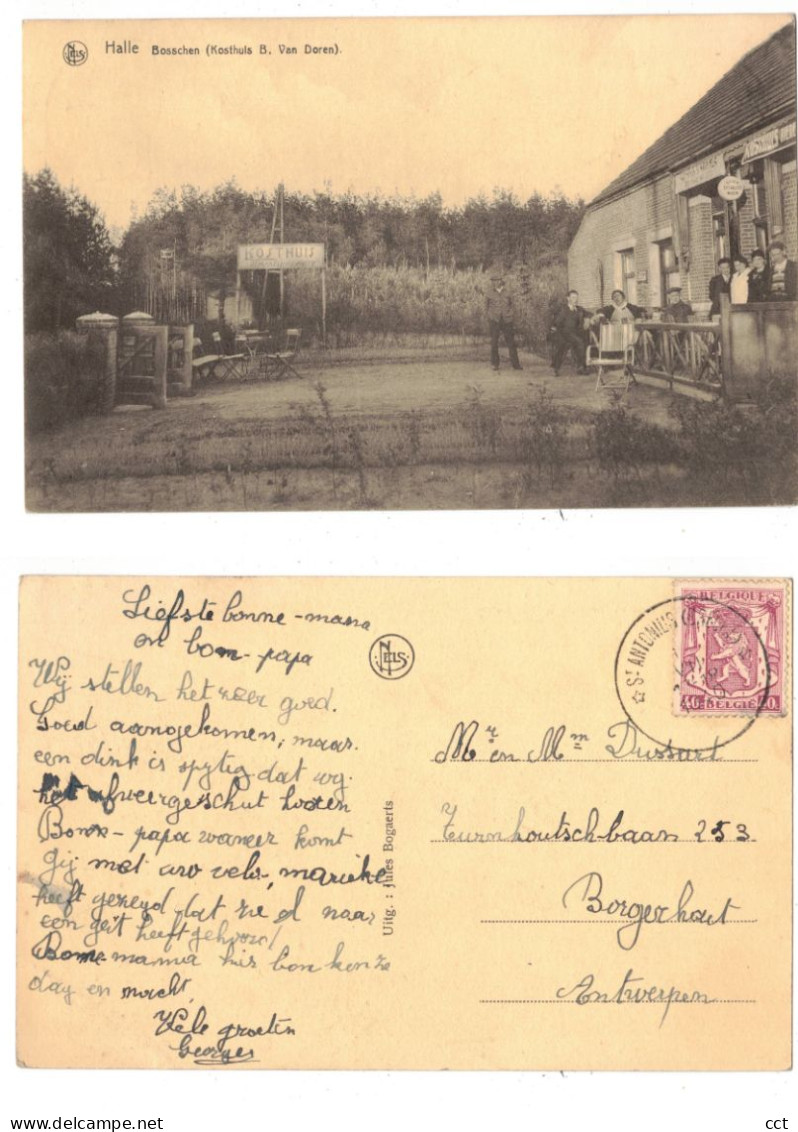 NELS
Halle Bosschen (Kosthuis B. Van Doren).
KOSTHUIS
Liefste bonne-mama
en bon-papa
Wij stellen het zeer goed.
Goed aangekomen, maar
een dink is spijtig dat wij
het afweergeschut hooren
Bonn-papa waneer komt
gij met uw velo, marieke
heeft gezeyd dat ze al naar
een geit heeft gehoord
Bonne mama hier bon
day en nacht,
Vele groeten
Georges
NELS
Uitg. : Jules Bogaerts
BELGIQUE
40c BELGIE 40c
ST ANTONIUS
Mr en Mm Dussart
Turnhoutschbaan 253
Borgerhout
Antwerpen
cct